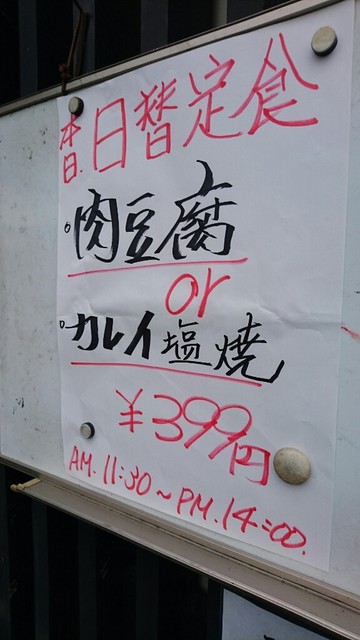 本日.日替定食
。肉豆腐
or
。カレイ塩焼
¥399円
AM.11:30~PM.14:00.